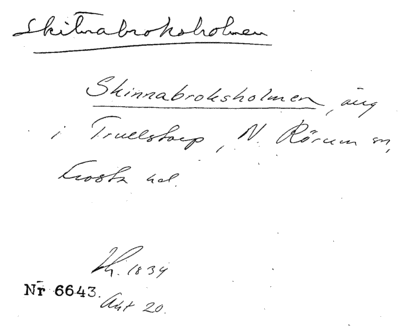 Skitnabroksholmen
Skinnabroksholmen, äng
i Trulstorp, N. Rörum sn,
Frosta hd.
Lh. 1834
Nr 6643. Akt 20.